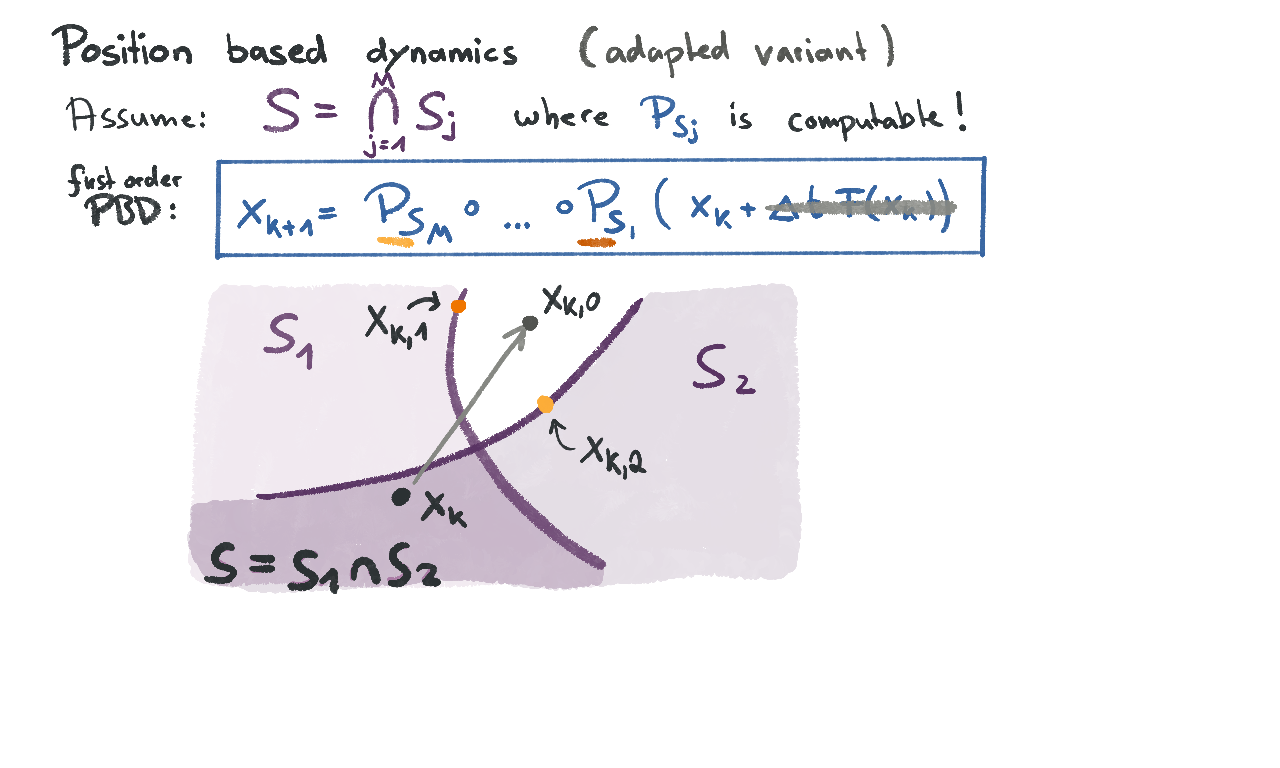 Position based dynamics (adapted variant)
Assume: S = ⋂_{j=1}^{M} S_j where P_{S_j} is computable!
first order
PBD: x_{k+1} = P_{S_M} ∘ ... ∘ P_{S_1} ( x_k + Δt f(x_k))
S_1
x_{k,1}
x_{k,0}
S_2
x_{k,2}
x_k
S = S_1 ∩ S_2